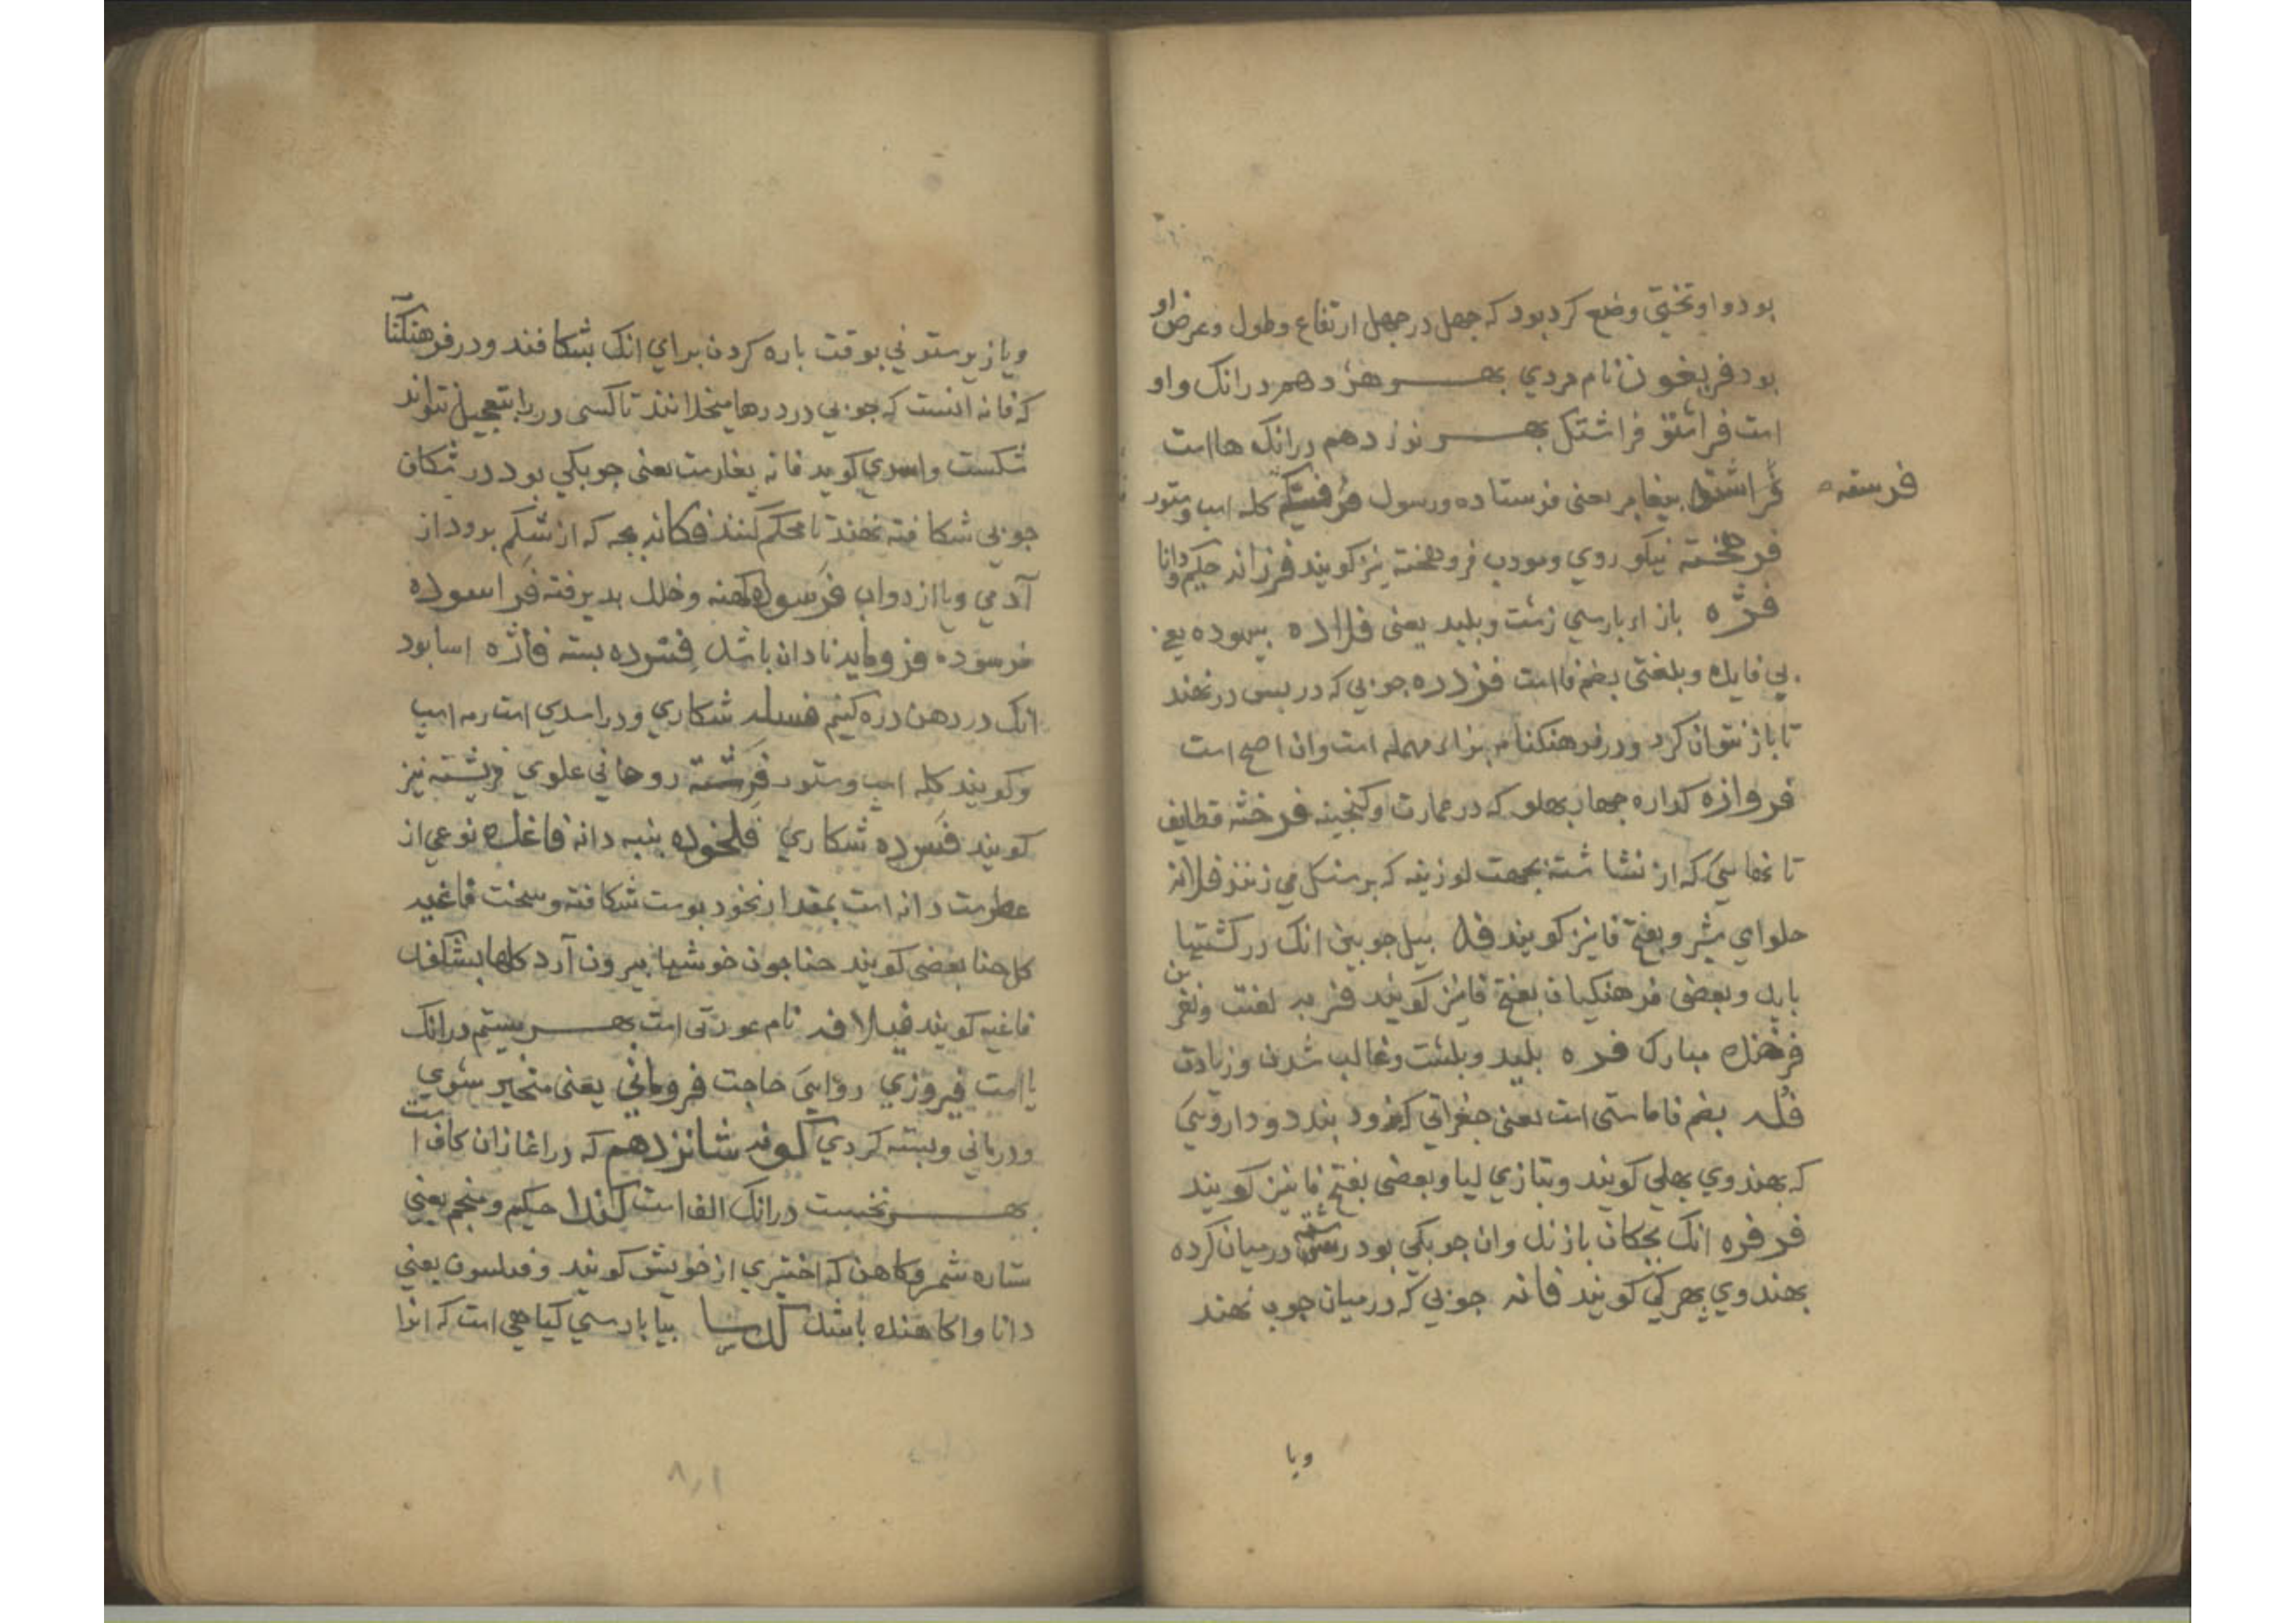 بود و او تختی وضع کرد بود که جهل در جهل ارتفاع و طول و عرض او
بود فریغون نام مردی بهر هژدهم در انک واو
است فراشتو فراشتک بهر نوزدهم در انک ها است
فراشته بیغامبر یعنی فرستاده و رسول کله اسب و ستور
فرسته
فرهخته نیکو روی و مودب فروهخته نیز کویند فرزانه حکیم و دانا
فژه باز اء بارسی زشت و بلید یعنی فلاده بیهوده یعنی
بی فایده و بلغتی بضم فا است فزدره جوبی که در بس در نهند
تا باز نتوان کرد و در فرهنکنامه براء مهمله است و ان اصح است
فروازه کداره جهار بهلو که در عمارت و کنجینه فرخشه قطایف
تا نماسی که از نشاشته بجهت لوزینه که بر سنکل می زنند فلاته
حلوای شیر و بفتح فا نیز کویند فه بیل جوبین انک در کشتیها
باید و بعضی فرهنکیان بفتح فا نیز کویند فربه لفت و نغز
فرخنده مبارک فره بلید و بلشت و غالب شدن و زیادت
فله بضم فا ماستی است یعنی جغراتی که زود بندد و داروئی
که بهندوی بهلی کویند و بتازی لبا و بعضی بفتح فا نیز کویند
فرفره انک بجکان بازند و ان جوبکی بود رشته در میان کرده
بهندوی بهرکی کویند فانه جوبی که در میان جوب نهند
ویا
ویا زیر ستونی بوقت باره کردن برای انک بشکافند و در فرهنکنامه
که فانه انست که جوبی در درها میخلانند تا کسی در را بتعجیل نتواند
شکست و اسدی کوید فانه بغارست یعنی جوبکی بود در شکاف
جوبی شکافته نهند تا محکم کنند فکانه بجه که از شکم برود از
آدمی و یا از دواب فرسوده کهنه و خلل بدیرفته فراسوده
فرسوده فرومایه نادان باشد فسرده بسته فاژه اسا بود
انک در دهن دره کنیم فسله شکاری و در اسدی است رمه اسب
و کویند کله اسب و ستور فرشته روحانی علوی فریشته نیز
کویند فسرده شکاری فلخوده بنبه دانه فاغله نوعی از
عطرست دانه است بمقدار نخود بوست شکافته و سخت فاغیه
کل حنا بعضی کویند حنا جون خوشها بیرون آرد کلها بشکفد
فاغیه کویند فیلافه نام عورتی است بهر بیستم در انک
یا است فیروزی روائی حاجت فرومانی یعنی متحیر شوی
و درمانی و بسته کردی کونه شانزدهم که در اغاز ان کاف است
بهر نخست در انک الف است کندا حکیم و منجم یعنی
ستاره شمر و کاهن که اختری از خویش کویند و فیلسوف یعنی
دانا و اکاهنده باشد بیا بارسی کیاهی است که انرا
۸۰۱